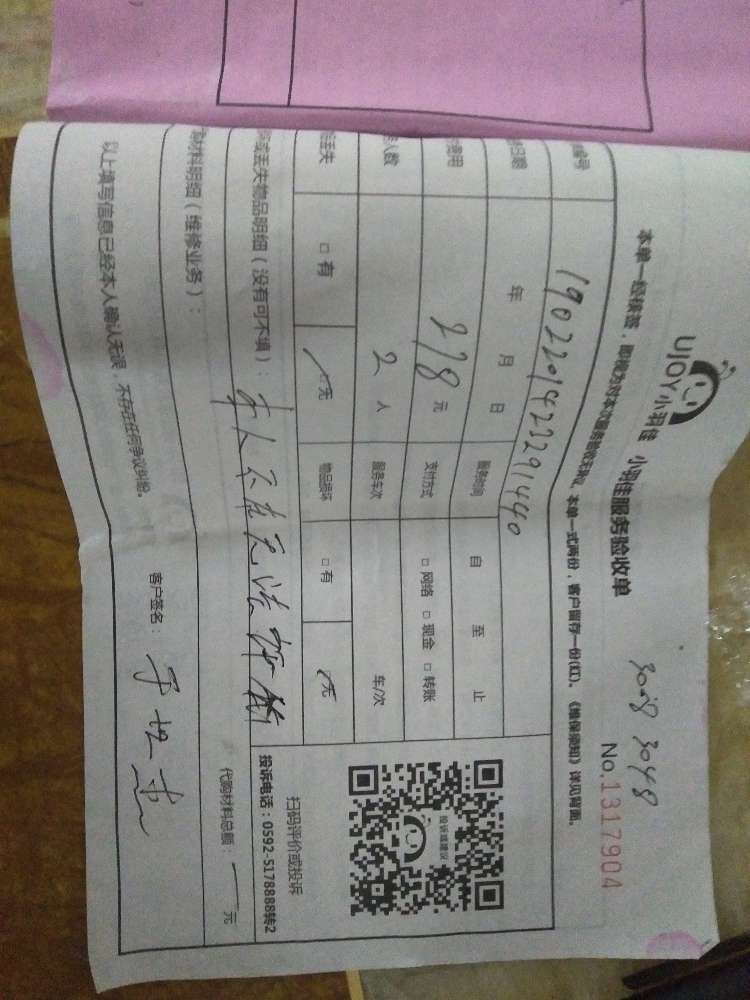 UJOY小羽佳 小羽佳服务验收单
3048
No.1317904
本单一经核签，即视为对本次服务验收无异议，本单一式两份，客户留存一份(红)。《维保须知》详见背面。
编号 1902201422291440
日期 年 月 日 服务时间 自 至 止
费用 278元 支付方式 □ 网络 □ 现金 □ 转账
人数 2 人 服务车次 车/次
丢失 □ 有 □ 无 物品损坏 □ 有 □ 无
或丢失物品明细（没有可不填）：
本人不在无法
扫码评价或投诉
投诉电话：0592-5178888转2
投诉或建议
材料明细（维修业务）：
代购材料总额： 元
以上填写信息已经本人确认无误，不存在任何争议纠纷。
客户签名：